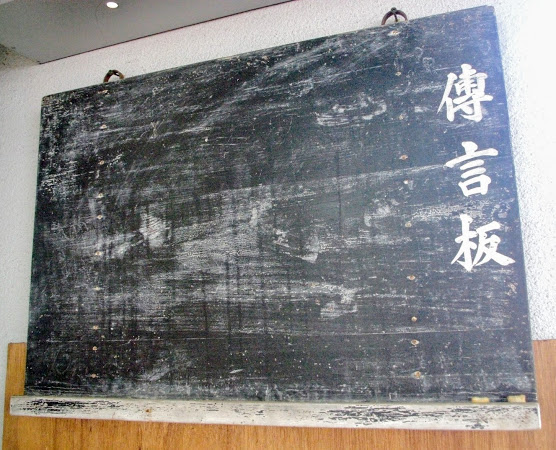 傳言板